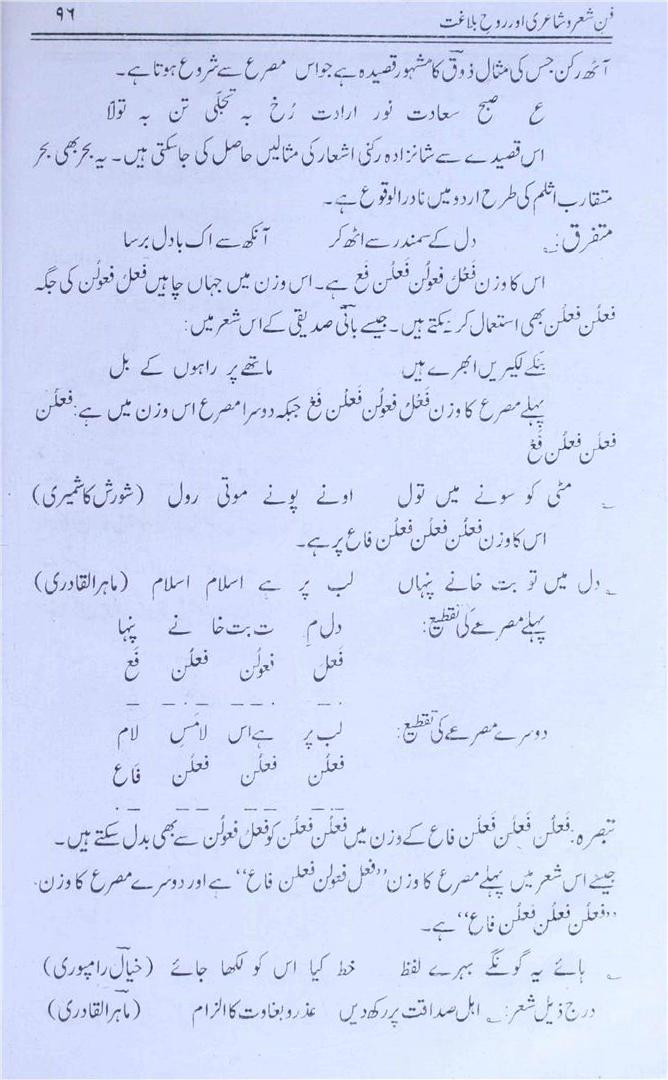 فن شعر و شاعری اور روح بلاغت ۹۶
آٹھ رکن جس کی مثال ذوقؔ کا مشہور قصیدہ ہے جو اس مصرع سے شروع ہوتا ہے۔
ع صبح سعادت نور ارادت رُخ بہ تجلّی تن بہ تولّا
اس قصیدے سے شانزدہ رکنی اشعار کی مثالیں حاصل کی جاسکتی ہیں۔ یہ بحر بھی بحر
متقارب اثلم کی طرح اردو میں نادر الوقوع ہے۔
متفرق: دل کے سمندر سے اٹھ کر آنکھ سے اک بادل برسا
اس کا وزن فَعْلُ فعولُن فَعلُن فَع ہے۔ اس وزن میں جہاں چاہیں فعلُ فعولُن کی جگہ
فعلُن فعلُن بھی استعمال کر سکتے ہیں۔ جیسے بانیؔ صدیقی کے اس شعر میں:
بنکے لکیریں ابھرے ہیں ماتھے پر راہوں کے بل
پہلے مصرع کا وزن فَعْلُ فعولُن فَعلُن فَعْ جبکہ دوسرا مصرع اس وزن میں ہے: فعلُن
فعلُن فعلُن فَعْ
مٹی کو سونے میں تول اونے پونے موتی رول (شورش کاشمیری)
اس کا وزن فعلُن فعلُن فعلُن فاع پر ہے۔
دل میں تو بت خانے پنہاں لب پر ہے اسلام اسلام (ماہرالقادری)
پہلے مصرعے کی تقطیع: دل مِ ت بت خا نے پنہا
فَعل فعولُن فعلُن فَع
دوسرے مصرعے کی تقطیع: لب پر ہے اس لامَسِ لام
فعلُن فعلُن فعلُن فاع
تبصرہ: فَعلُن فَعلُن فَعلُن فاع کے وزن میں فعلُن فعلُن کو فعلُ فعولُن سے بھی بدل سکتے ہیں۔
جیسے اس شعر میں پہلے مصرع کا وزن ’’فعل فعولن فعلن فاع‘‘ ہے اور دوسرے مصرع کا وزن
’’فعلُن فعلُن فعلُن فاع‘‘ ہے۔
ہائے یہ گونگے بہرے لفظ خط کیا اس کو لکھا جائے (خیالؔ رامپوری)
درج ذیل شعر: اہل صداقت پر رکھ دیں عذر و بغاوت کا الزام (ماہرالقادری)